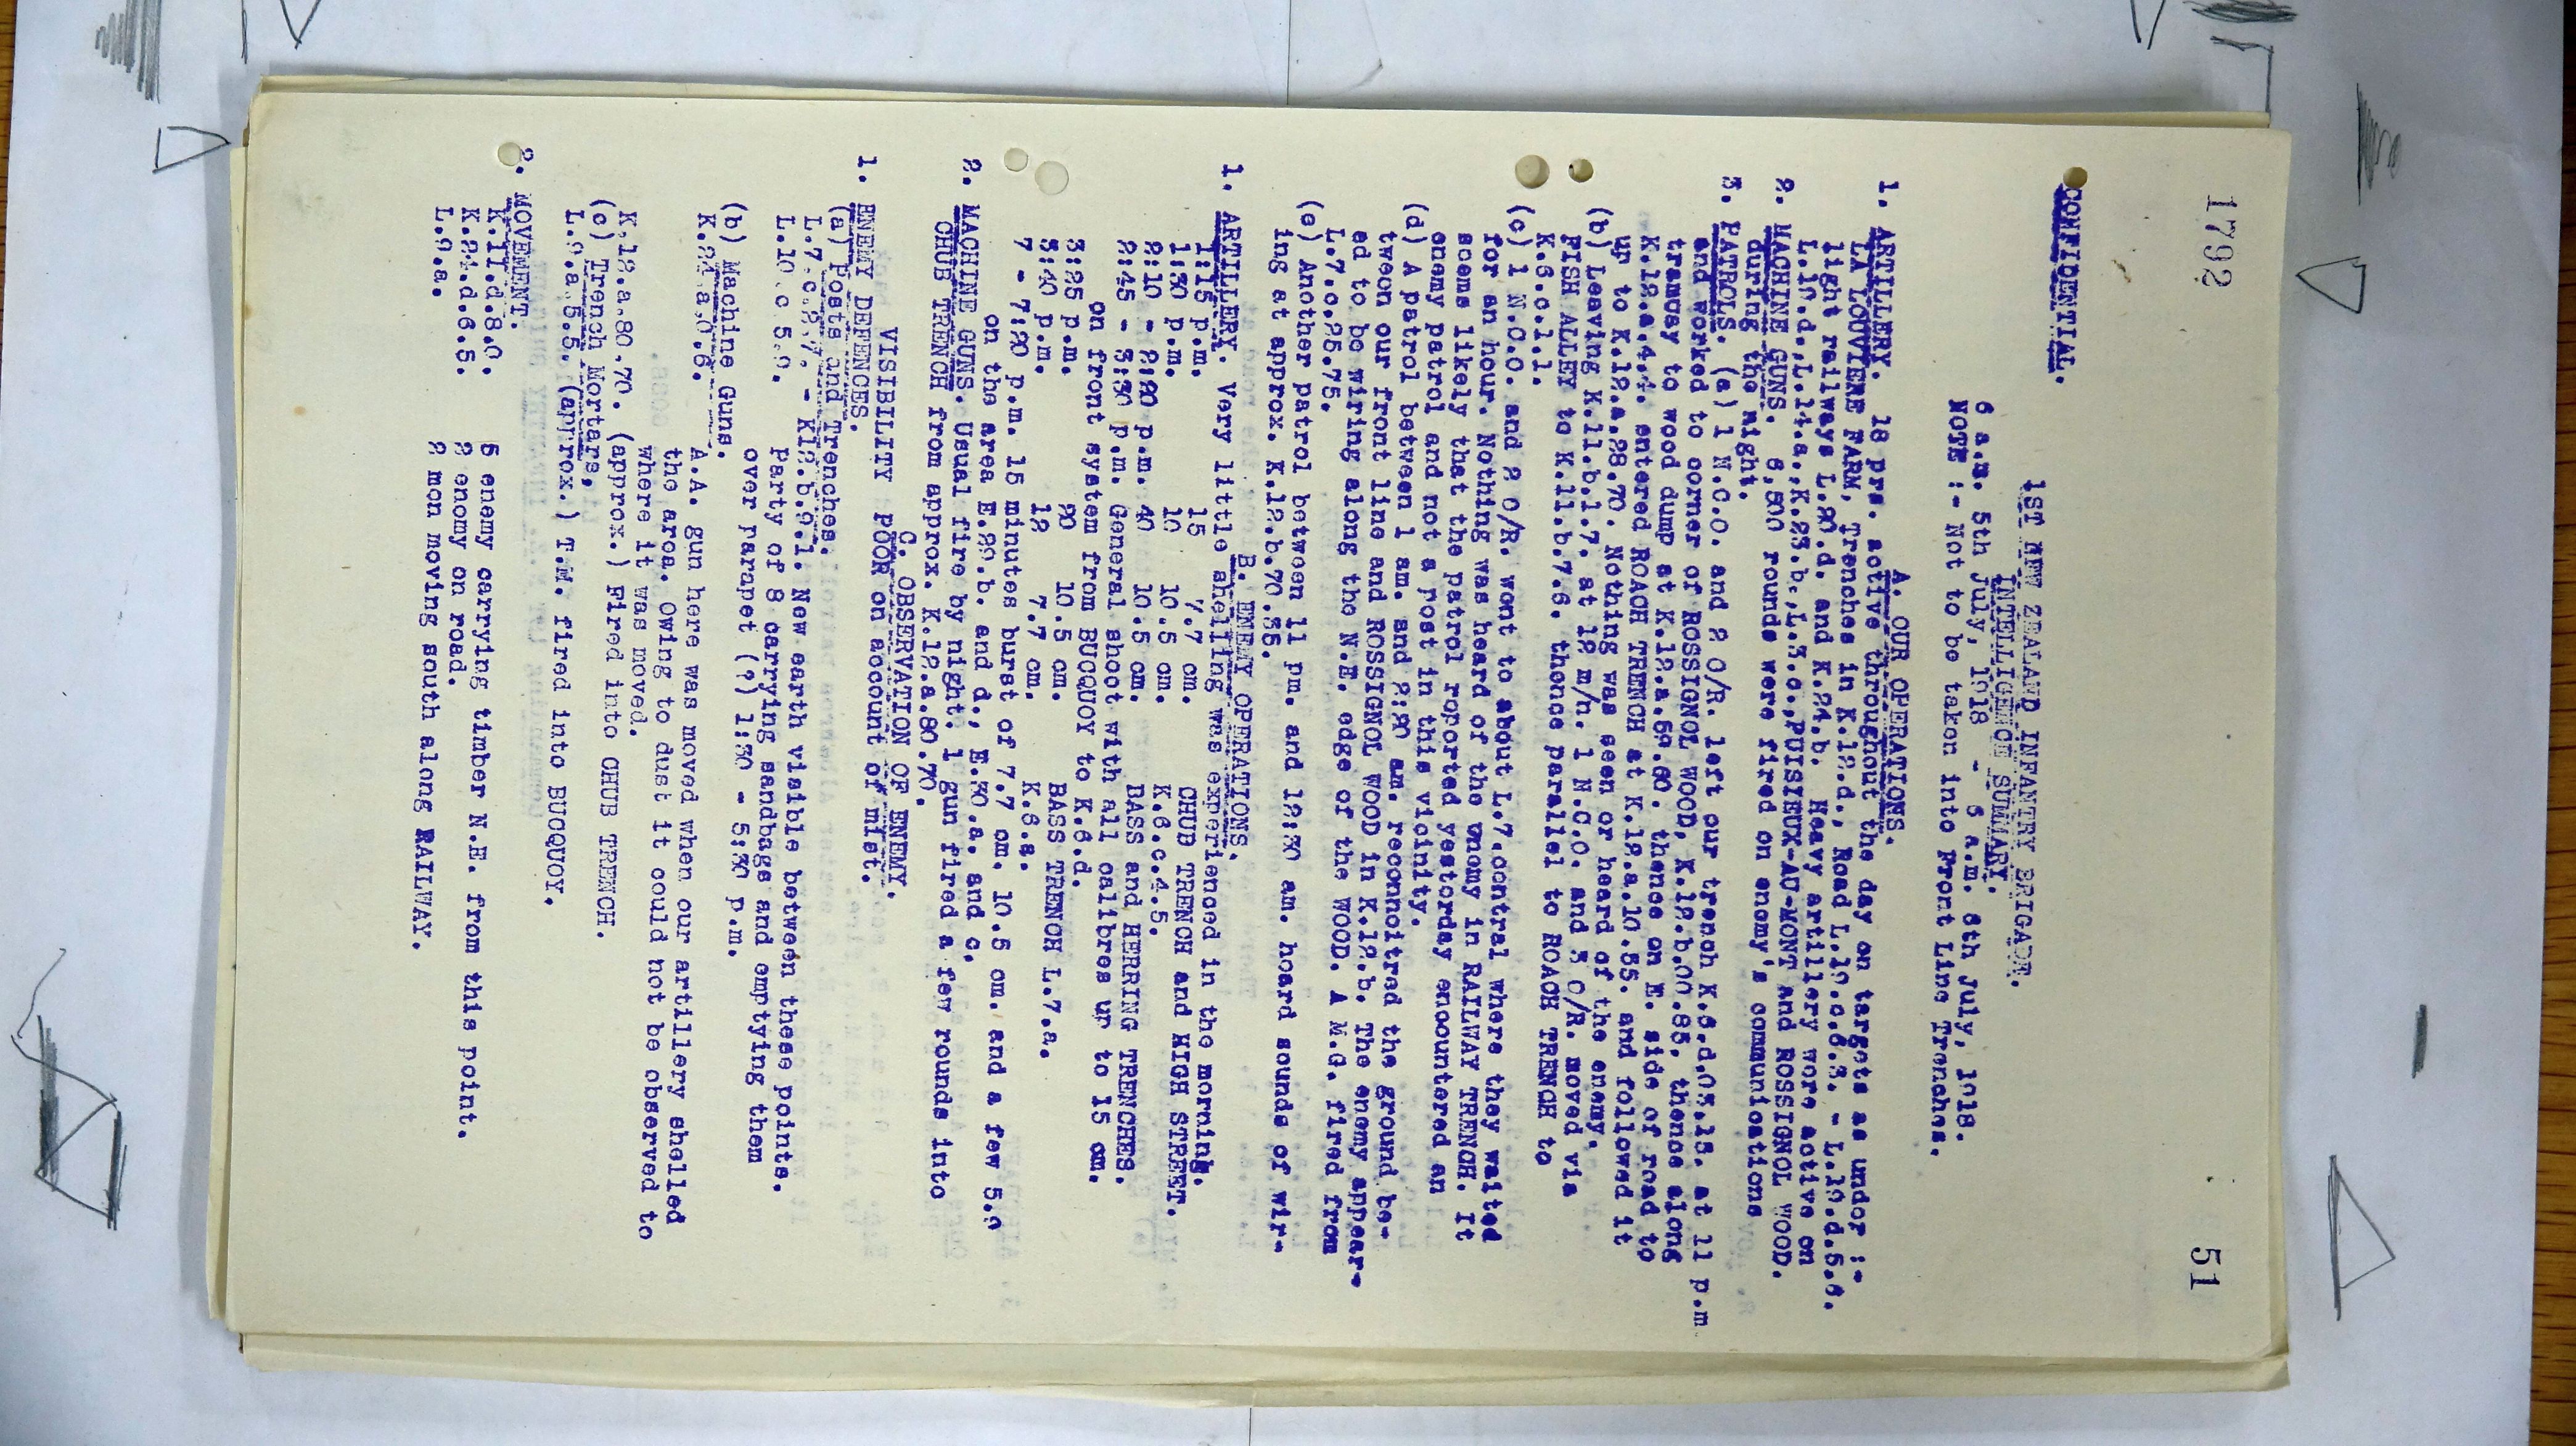 1792
51
CONFIDENTIAL.
1ST NEW ZEALAND INFANTRY BRIGADE.
INTELLIGENCE SUMMARY.
6 a.m. 5th July, 1918 - 6 a.m. 6th July, 1918.
NOTE :- Not to be taken into Front Line Trenches.
A. OUR OPERATIONS.
1. ARTILLERY. 18 prs. active throughout the day on targets as under :-
LA LOUVIERE FARM, Trenches in K.12.d., Road L.10.c.6.3. - L.10.d.5.6.
L.10.d.,L.14.a.,K.23.b.,L.3.c.,PUISIEUX-AU-MONT and ROSSIGNOL WOOD.
light railways L.20.d. and K.24.b. Heavy artillery were active on
2. MACHINE GUNS. 6,500 rounds were fired on enemy's communications
during the night.
3. PATROLS. (a) 1 N.C.O. and 2 O/R. left our trench K.6.d.05.15. at 11 p.m
and worked to corner of ROSSIGNOL WOOD, K.12.b.00.85, thence along
tramway to wood dump at K.12.a.50.60. thence on E. side of road to
K.12.a.4.4. entered ROACH TRENCH at K.12.a.10.55. and followed it
up to K.12.a.28.70. Nothing was seen or heard of the enemy.
(b) Leaving K.11.b.1.7. at 12 m/n. 1 N.C.O. and 3 O/R. moved via
FISH ALLEY to K.11.b.7.6. thence parallel to ROACH TRENCH to
K.6.c.1.1.
(c) 1 N.C.O. and 2 O/R. went to about L.7.central where they waited
for an hour. Nothing was heard of the enemy in RAILWAY TRENCH. It
seems likely that the patrol reported yesterday encountered an
enemy patrol and not a post in this vicinity.
(d) A patrol between 1 am. and 2:20 am. reconnoitred the ground be-
tween our front line and ROSSIGNOL WOOD in K.12.b. The enemy appear-
ed to be wiring along the N.E. edge of the WOOD. A M.G. fired from
L.7.c.25.75.
(e) Another patrol between 11 pm. and 12:30 am. heard sounds of wir-
ing at approx. K.12.b.70.35.
B. ENEMY OPERATIONS.
1. ARTILLERY. Very little shelling was experienced in the morning.
1:15 p.m. 15 7.7 cm. CHUB TRENCH and HIGH STREET.
1:30 p.m. 10 10.5 cm. K.6.c.4.5.
2:10 - 2:20 p.m. 40 10.5 cm. BASS and HERRING TRENCHES.
2:45 - 3:30 p.m. General shoot with all calibres up to 15 cm.
on front system from BUCQUOY to K.6.d.
3:25 p.m. 20 10.5 cm. K.6.a.
3:40 p.m. 12 7.7 cm. BASS TRENCH L.7.a.
7 - 7:20 p.m. 15 minutes burst of 7.7 cm. 10.5 cm. and a few 5.9
on the area E.29.b. and d., E.30.a. and c.
2. MACHINE GUNS. Usual fire by night. 1 gun fired a few rounds into
CHUB TRENCH from approx. K.12.a.80.70.
C. OBSERVATION OF ENEMY.
VISIBILITY POOR on account of mist.
1. ENEMY DEFENCES.
(a) Posts and Trenches.
L.7.c.2.7. - K12.b.9.1. New earth visible between these points.
L.10.c.5.9. Party of 8 carrying sandbags and emptying them
over parapet (?) 1:30 - 5:30 p.m.
(b) Machine Guns.
K.24.a.0.6. A.A. gun here was moved when our artillery shelled
the area. Owing to dust it could not be observed to
where it was moved.
K.12.a.80.70. (approx.) Fired into CHUB TRENCH.
(c) Trench Mortars.
L.9.a.5.5. (approx.) T.M. fired into BUCQUOY.
2. MOVEMENT.
K.11.d.8.0. 5 enemy carrying timber N.E. from this point.
K.24.d.6.5. 2 enemy on road.
L.9.a. 2 men moving south along RAILWAY.